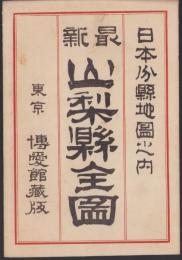 日本分縣地圖之内
最新
山梨縣全圖
東京 博愛館藏版